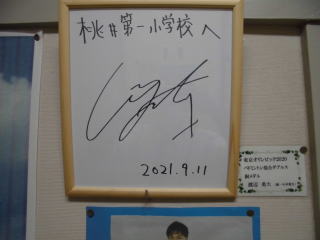 桃井第一小学校へ
2021.9.11
東京オリンピック2020
バドミントン混合ダブルス
銅メダル
渡辺 勇大